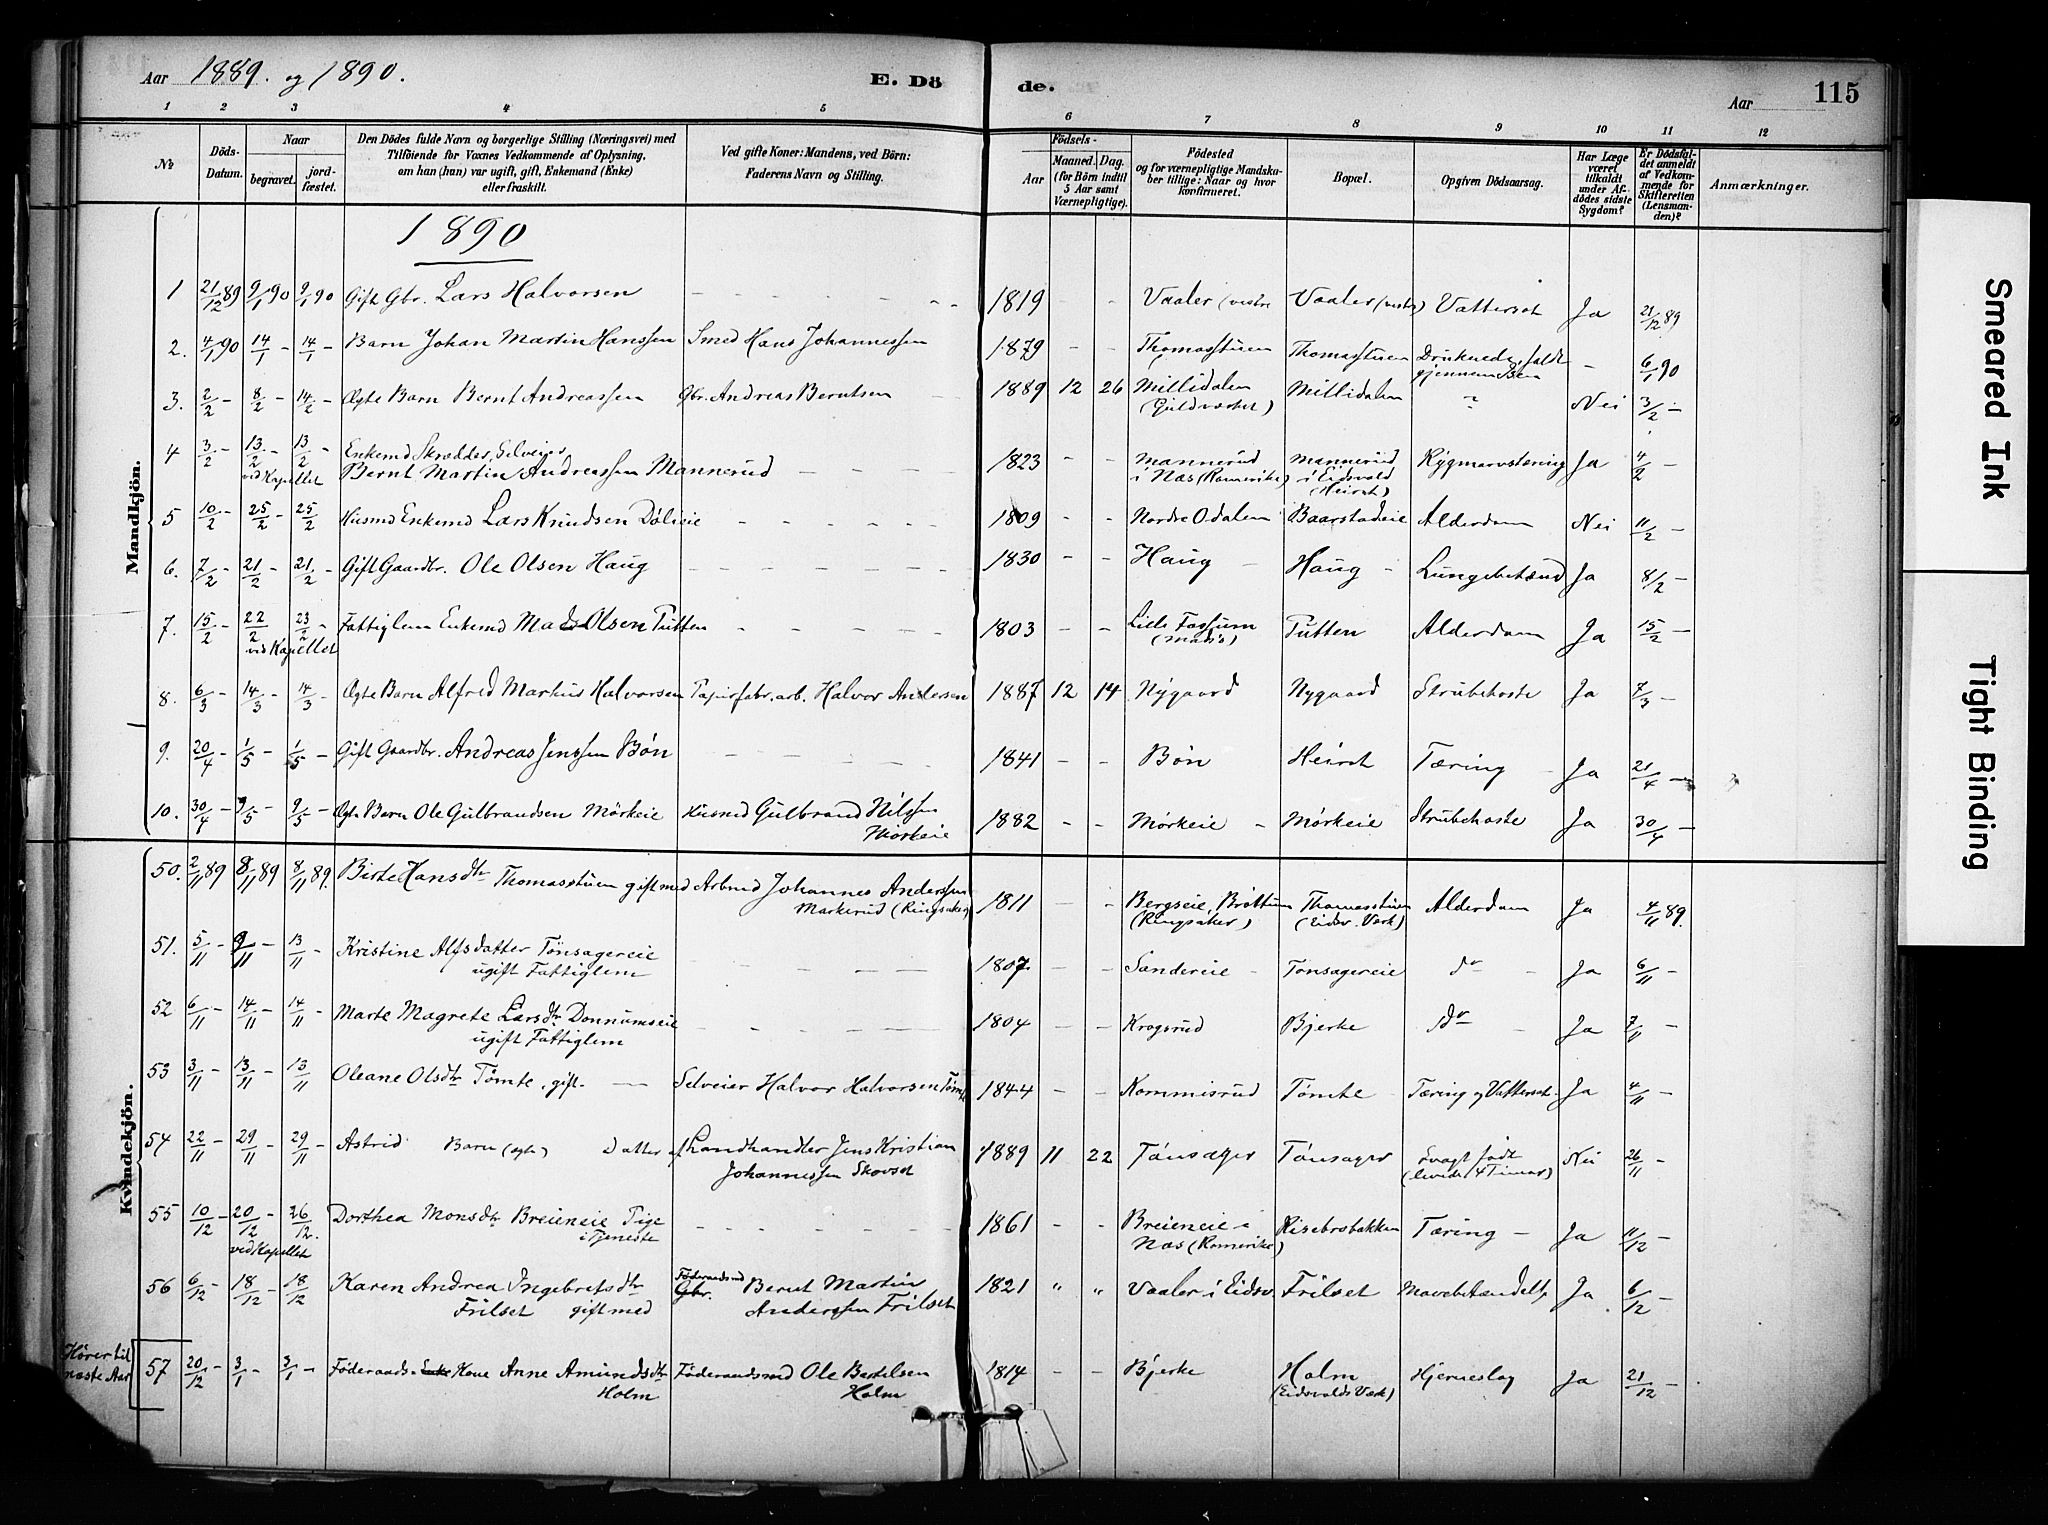 Aar 1889. og 1890. E. Dö de. Aar 115
1 2 3 4 5 6 7 8 9 10 11 12
№ Döds-Datum. Naar begravet. jord-fæstet. Den Dödes fulde Navn og borgerlige Stilling (Næringsvei) med Tilföiende for Voxnes Vedkommende af Oplysning, om han (hun) var ugift, gift, Enkemand (Enke) eller fraskilt. Ved gifte Koner: Mandens, ved Börn: Faderens Navn og Stilling. Födsels- Aar Maaned. Dag. (for Börn indtil 5 Aar samt Værnepligtige). Födested og for værnepligtige Mandskaber tillige: Naar og hvor konfirmeret. Bopæl. Opgiven Dödsaarsag. Har Læge været tilkaldt under Afdödes sidste Sygdom? Er Dödsfaldet anmeldt af Vedkommende for Skifteretten (Lensmanden)? Anmærkninger.
Mandkjön.
1890
1 21/12 89 9/1 90 9/1 90 Gift Gbr. Lars Halvorsen - - - 1819 - - Vaaler (vestre) Vaaler (vestre) Vattersot Ja 21/12 89
2. 4/1 90 14/1 - 14/1 - Barn Johan Martin Hanssen Smed Hans Johannessen 1879 - - Thomasstuen Thomasstuen Druknede, faldt gjennem Isen - 6/1 90
3. 2/2 - 8/2 - 14/2 - Ægte Barn Bernt Andreassen Gbr. Andreas Berntsen - 1889 12 26 Millidalen (Guldværket) Millidalen ? Nei 3/2 -
4 3/2 - 13/2 - 13/2 - Enkemd Skrædder, Selveier
ved Kapellet Bernt Martin Andreassen Mannerud - - - 1823 - - Mannerud i Næs (Romerike) Mannerud i Eidsvold (Heirst) Rygmarvstæring Ja 4/2 -
5 10/2 - 25/2 - 25/2 Husmd Enkemd Lars Knudsen Dölieie - - - 1809 - - Nordre Odalen Baarstadeie Alderdom Nei 11/2 -
6. 7/2 - 21/2 - 21/2 - Gift Gaardbr. Ole Olsen Haug - - - 1830 - - Haug - Haug - Lungebetænd Ja 8/2 -
7. 15/2 - 22/2 23/2 - Fattiglem Enkemd Mads Olsen Putten - - - 1803 - - Lille Fossum Putten Alderdom Ja 15/2 -
ved Kapellet
8. 6/3 - 14/3 - 14/3 - Ægte Barn Alfred Markus Halvorsen Papirfabr. arb. Halvor Andersen 1887 12 14 Nygaard Nygaard Strubehoste Ja 7/3 -
9. 20/4 - 1/5 - 1/5 - Gift Gaardbr. Andreas Jenssen Bön - - - 1841 - - Bön Heirst Tæring - Ja 21/4 -
10. 30/4 - 9/5 - 9/5 - Ægte Barn Ole Gulbrandsen Mörkeie Husmd Gulbrand Nilssen Mörkeie 1882 - - Mörkeie - Mörkeie Strubehoste Ja 30/4 -
Kvindekjön.
50. 2/11 89 8/11 89 8/11 89. Birte Hansdtr Thomasstuen gift med Arbmd Johannes Anderssen Markerud (Ringsaker) 1811 - - Bergseie, Bröttum (Ringsaker) Thomasstuen (Eidsv. Værk) Alderdom Ja 4/11 89.
51. 5/11 - 9/11 - 13/11 - Kristine Alfsdatter Tönsagereie ugift Fattiglem - - - 1807. - - Sandereie - Tönsagereie do - Ja 6/11 -
52 6/11 - 14/11 - 14/11 - Marte Magrete Larsdtr Donnumseie ugift Fattiglem - - - 1804 - - Krogsrud Bjerke do - Ja 7/11 -
53 3/11 - 13/11 - 13/11 - Oleane Olsdtr Tömte, gift - Selveier Halvor Halvorsen Tömte 1844 - - Kommisrud Tömte - Tæring og Vattersot. Ja 4/11 -
54 22/11 - 29/11 - 29/11 - Astrid Barn (ægte) Datter af Landhandler Jens Kristian Johannessen Skovset 1889 11 22 Tönsager Tönsager Svagt födt (levede 4 Timer) Nei 26/11 -
55 10/12 - 20/12 - 26/12. Dorthea Monsdtr Breieneie Pige i Tjeneste - - - 1861 - - Breieneie i Næs (Romerike) Risebrobakken Tæring - Ja 11/12 -
ved Kapellet
56 6/12 - 18/12 - 18/12 Karen Andrea Ingebretsdtr Frilset gift med Föderaadsmd Gbr. Bernt Martin Anderssen Frilset 1821 " " Vaaler i Eidsv Frilset Mavebetændelse Ja 6/12 -
Hörer til næste Aar 57 20/12 - 3/1 - 3/1 - Föderaads Enke Kone Anne Amundsdtr Holm Föderaadsmd Ole Bertelsen Holm 1814 - - Bjerke Holm (Eidsvolds Værk) Hjerneslag Ja 21/12 -
Smeared Ink
Tight Binding